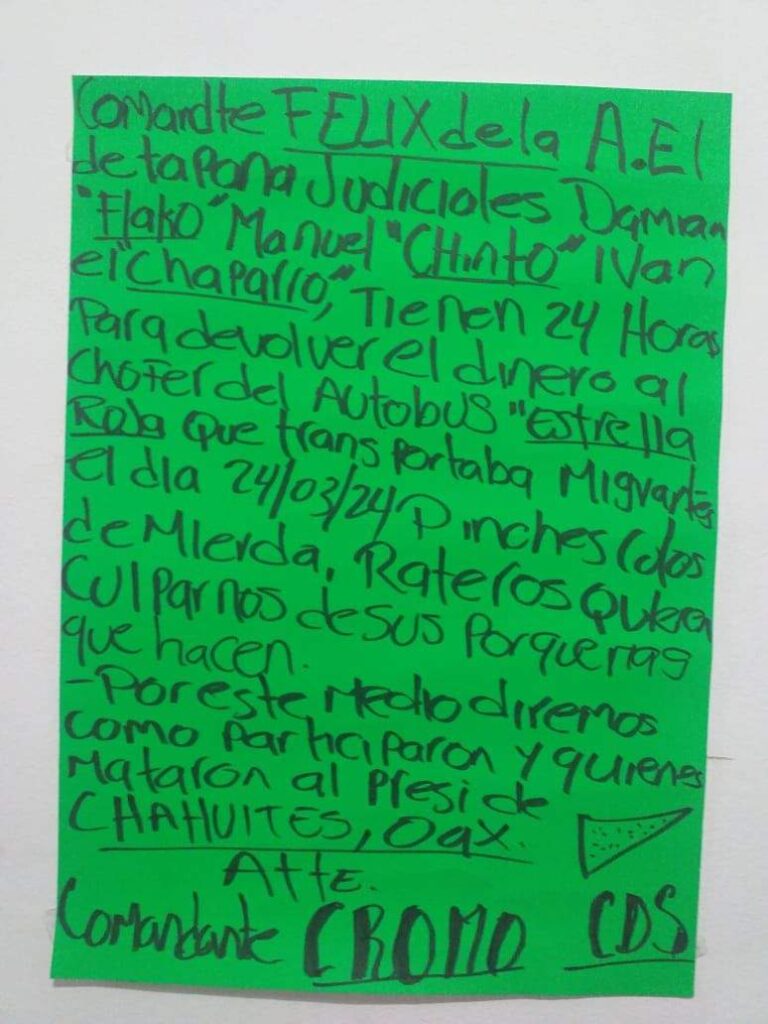 Comandte FELIX de la A.EI
de tapana Judiciales Damian
"Flako" Manuel "CHinto" IVan
el "Chaparro," Tienen 24 Horas
Para devolver el dinero al
Chofer del AUtobUS "Estrella
Roja Que trans portaba Migrantes
el dia 24/03/24 Pinches Culos
de Mierda, Rateros Quieren
Culparnos de SUS Porquerias
que hacen.
-Por este Medio diremos
como Participaron y quienes
Mataron al Presi de
CHAHUITES, Oax.
Atte.
Comandante CROMO CDS